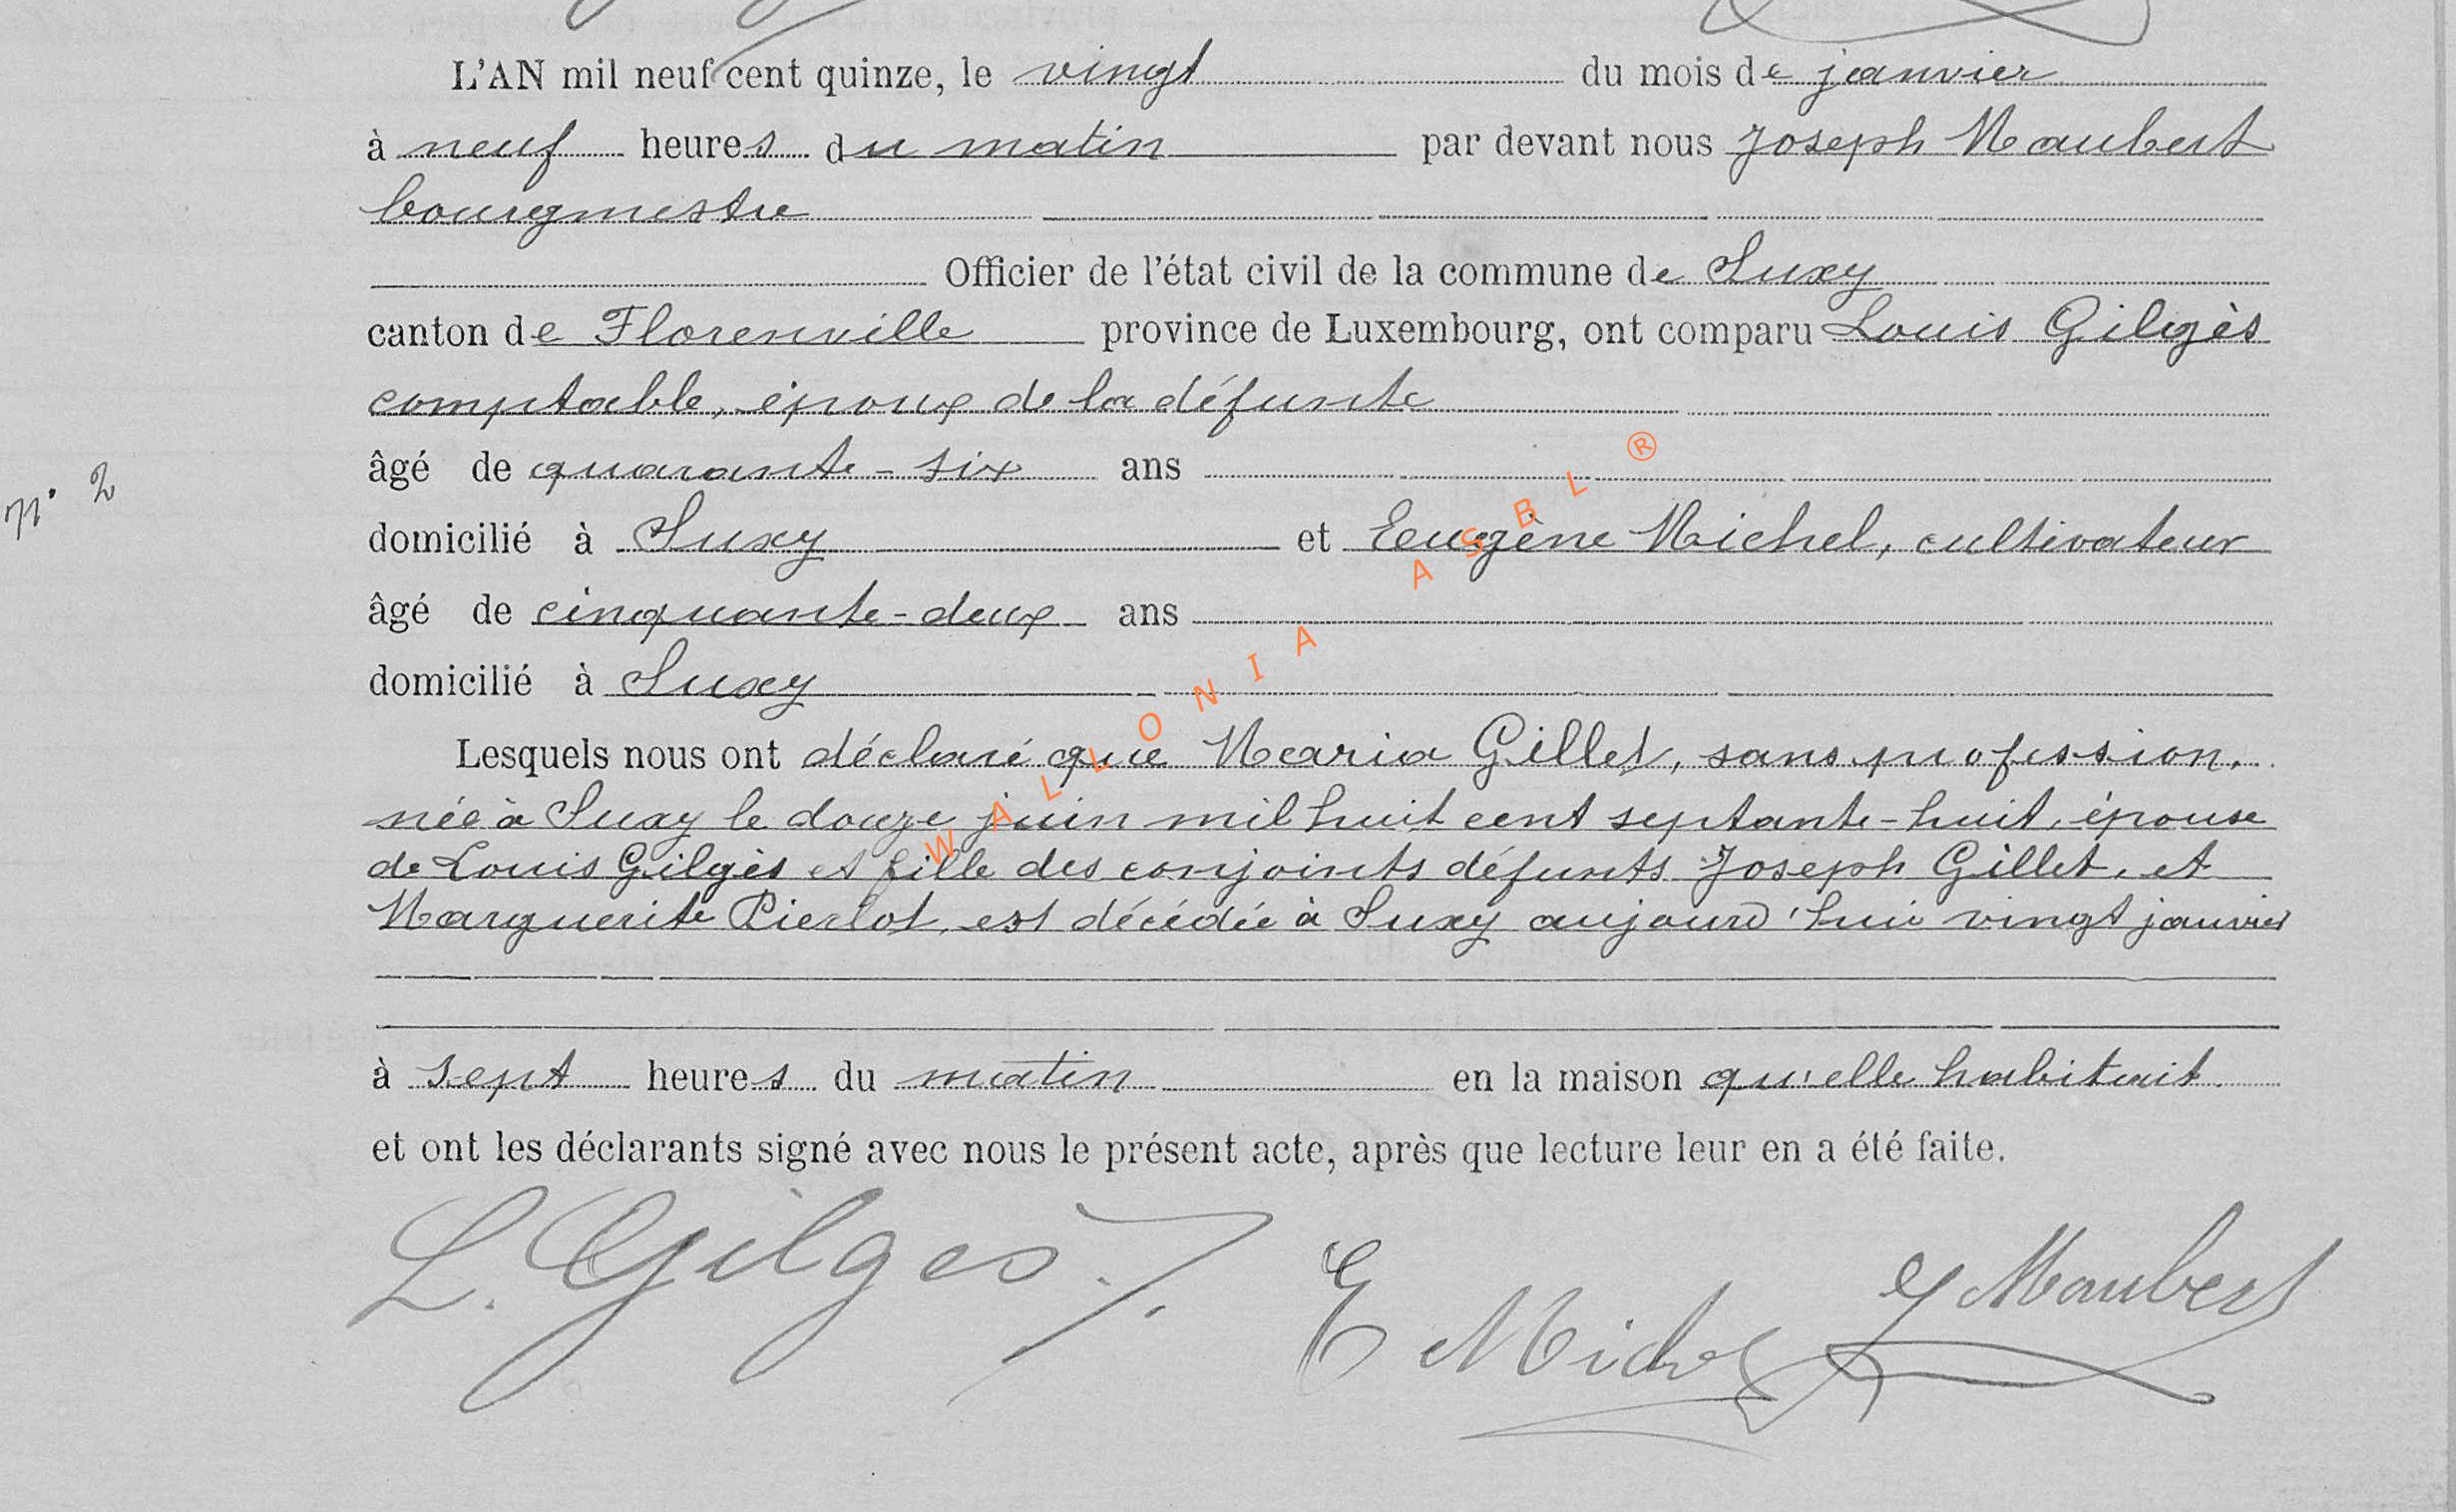 L'AN mil neuf cent quinze, le vingt du mois de janvier
à neuf heures du matin par devant nous Joseph Maubert
bourgmestre
Officier de l'état civil de la commune de Suxy
canton de Florenville province de Luxembourg, ont comparu Louis Gilgès
comptable, époux de la défunte
âgé de quarante-six ans
N° 2
domicilié à Suxy et Eugène Michel, cultivateur
âgé de cinquante-deux ans
domicilié à Suxy
Lesquels nous ont déclaré que Maria Gillet, sans profession,
née à Suxy le douze juin mil huit cent septante-huit, épouse
de Louis Gilgès et fille des conjoints défunts Joseph Gillet, et
Marguerite Pierlot, est décédée à Suxy aujourd'hui vingt janvier
à sept heures du matin en la maison qu'elle habitait.
et ont les déclarants signé avec nous le présent acte, après que lecture leur en a été faite.
L. Gilges
E Michel
J Maubert
WALLONIA ASBL ®